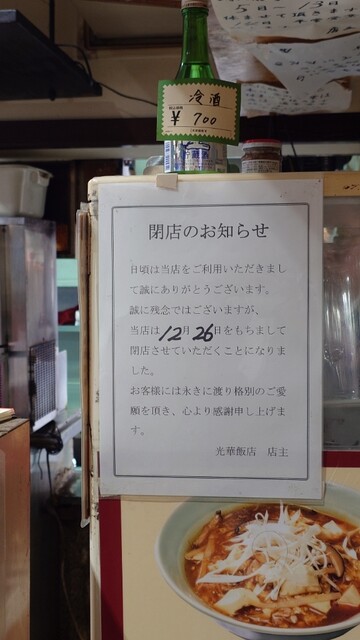 5日〜13日
冷酒
¥700
閉店のお知らせ
日頃は当店をご利用いただきまし
て誠にありがとうございます。
誠に残念ではございますが、
当店は12月26日をもちまして
閉店させていただくことになりま
した。
お客様には永きに渡り格別のご愛
願を頂き、心より感謝申し上げま
す。
光華飯店 店主